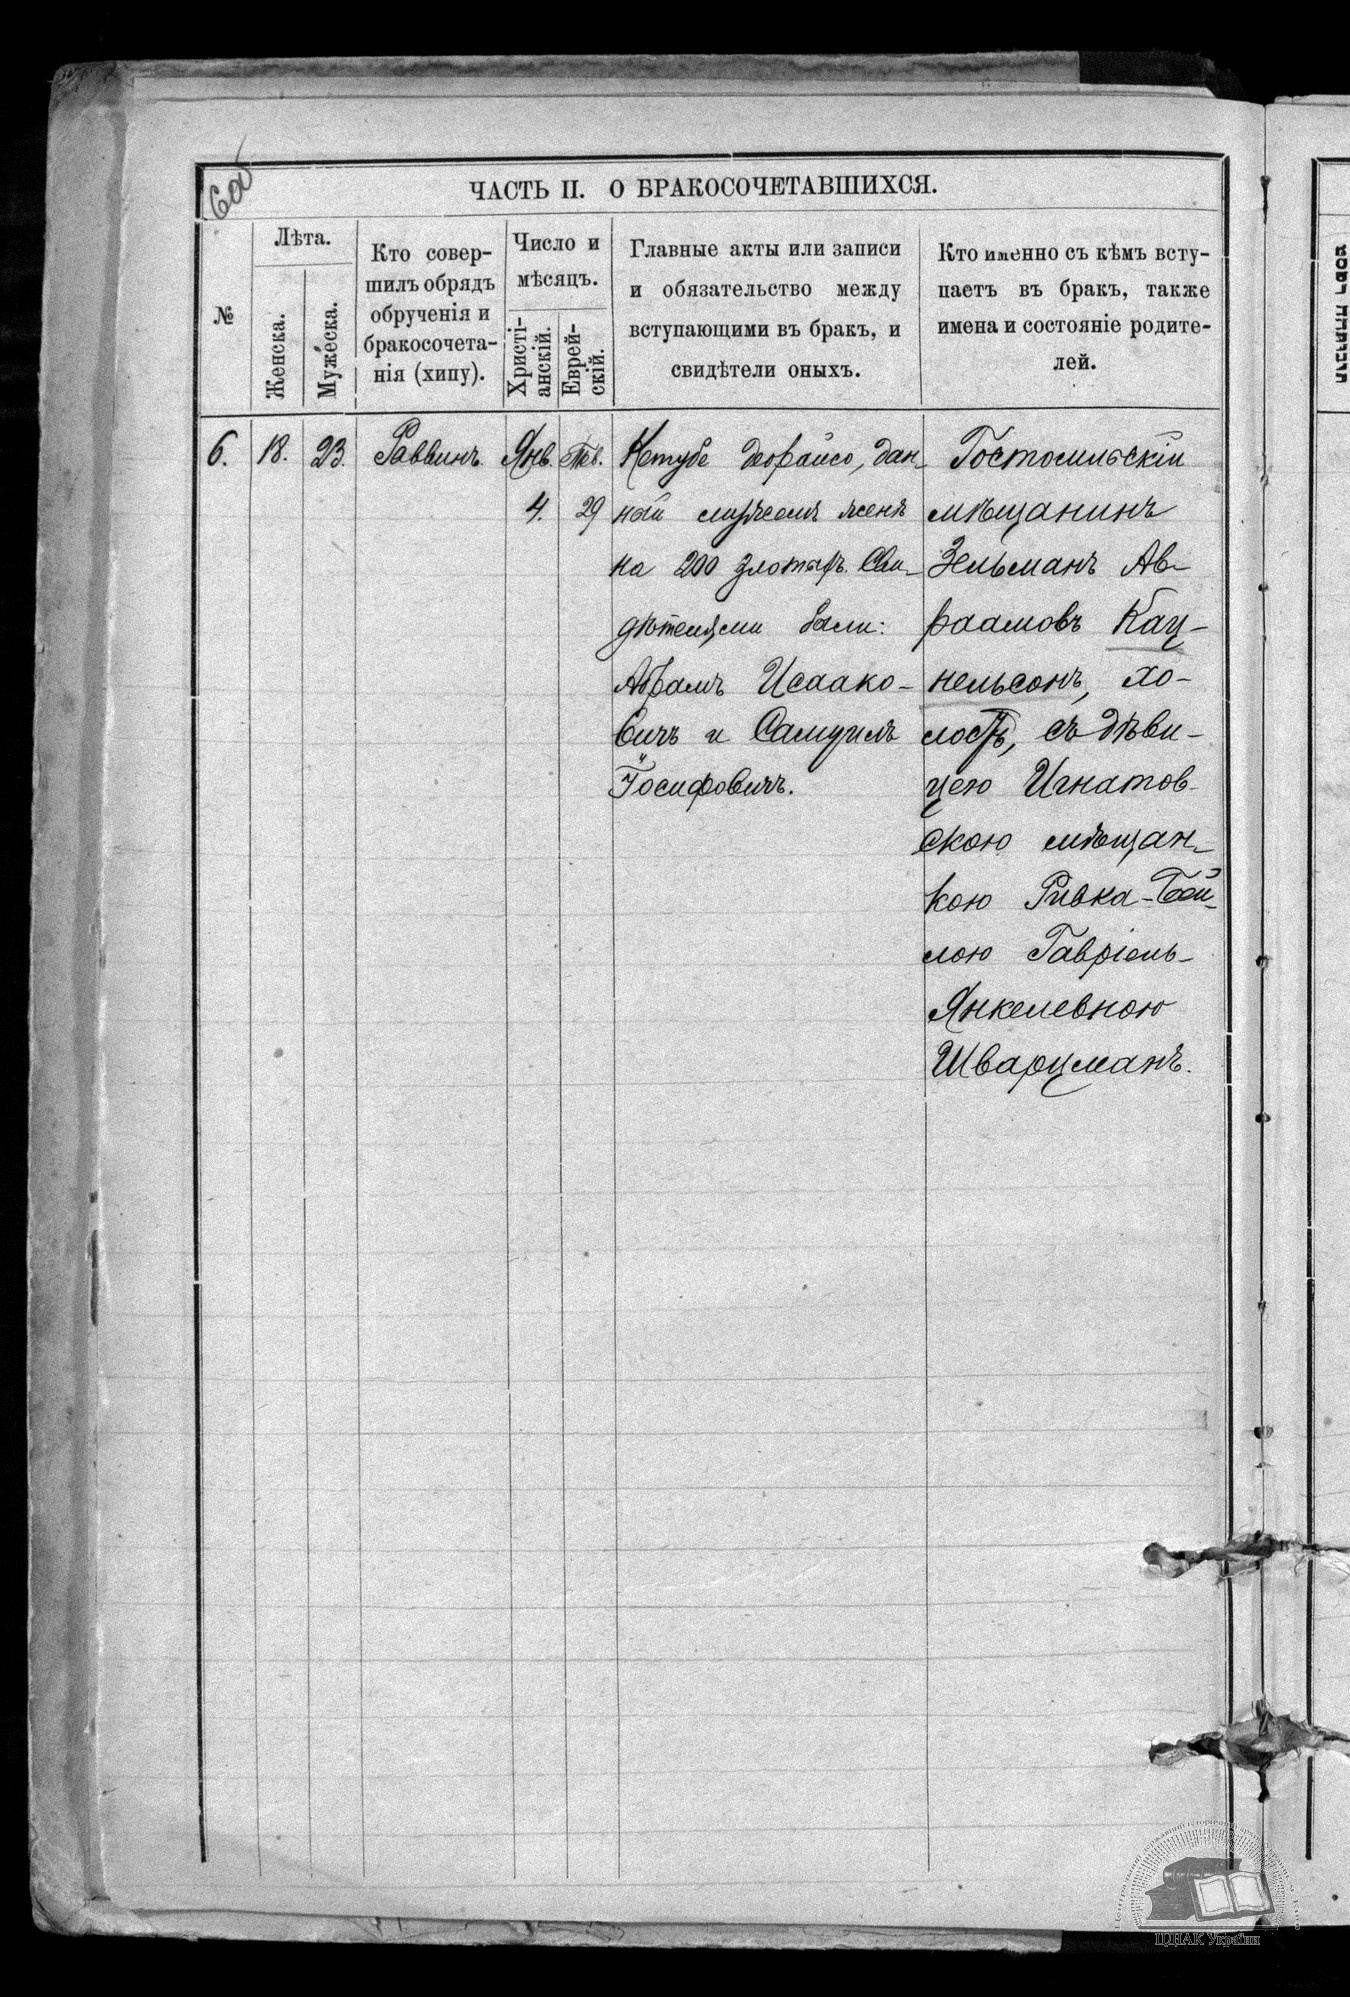 6об
ЧАСТЬ II. О БРАКОСОЧЕТАВШИХСЯ.
№
Лѣта.
Женска.
Мужеска.
Кто совер-
шилъ обрядъ
обрученія и
бракосочета-
нія (хипу).
Число и
мѣсяцъ.
Христі-
анскій.
Еврей-
скій.
Главные акты или записи
и обязательство между
вступающими въ брак, и
свидѣтели оныхъ.
Кто именно съ кѣмъ всту-
паетъ въ бракъ, также
имена и состояніе родите-
лей.
6.
18.
23.
Раввинъ.
Янв.
4.
Тев.
29
Кетубе деорайсо, дан-
ный мужемъ женѣ
на 200 злотыхъ. Сви-
дѣтелями были:
Абрамъ Исаако-
вичъ и Самуилъ
Іосифовичъ.
Гостомильскій
мѣщанинъ
Зельманъ Ав-
раамовъ Кац-
нельсонъ, хо-
лостъ, съ дѣви-
цею Игнатов-
скою мѣщан-
кою Ривка-Бей-
лою Гавріель-
Янкелевною
Шварцманъ.
ЦДІАК України